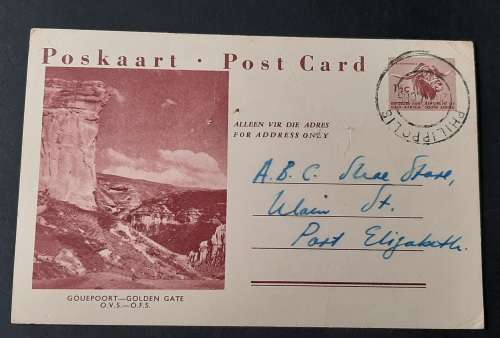 Poskaart · Post Card
ALLEEN VIR DIE ADRES
FOR ADDRESS ONLY
PHILIPPOLIS
REPUBLIEK VAN SUID-AFRIKA
REPUBLIC OF SOUTH AFRICA
A.B.C. Shoe Store,
Main St.
Port Elizabeth.
GOUEPOORT—GOLDEN GATE
O.V.S.—O.F.S.